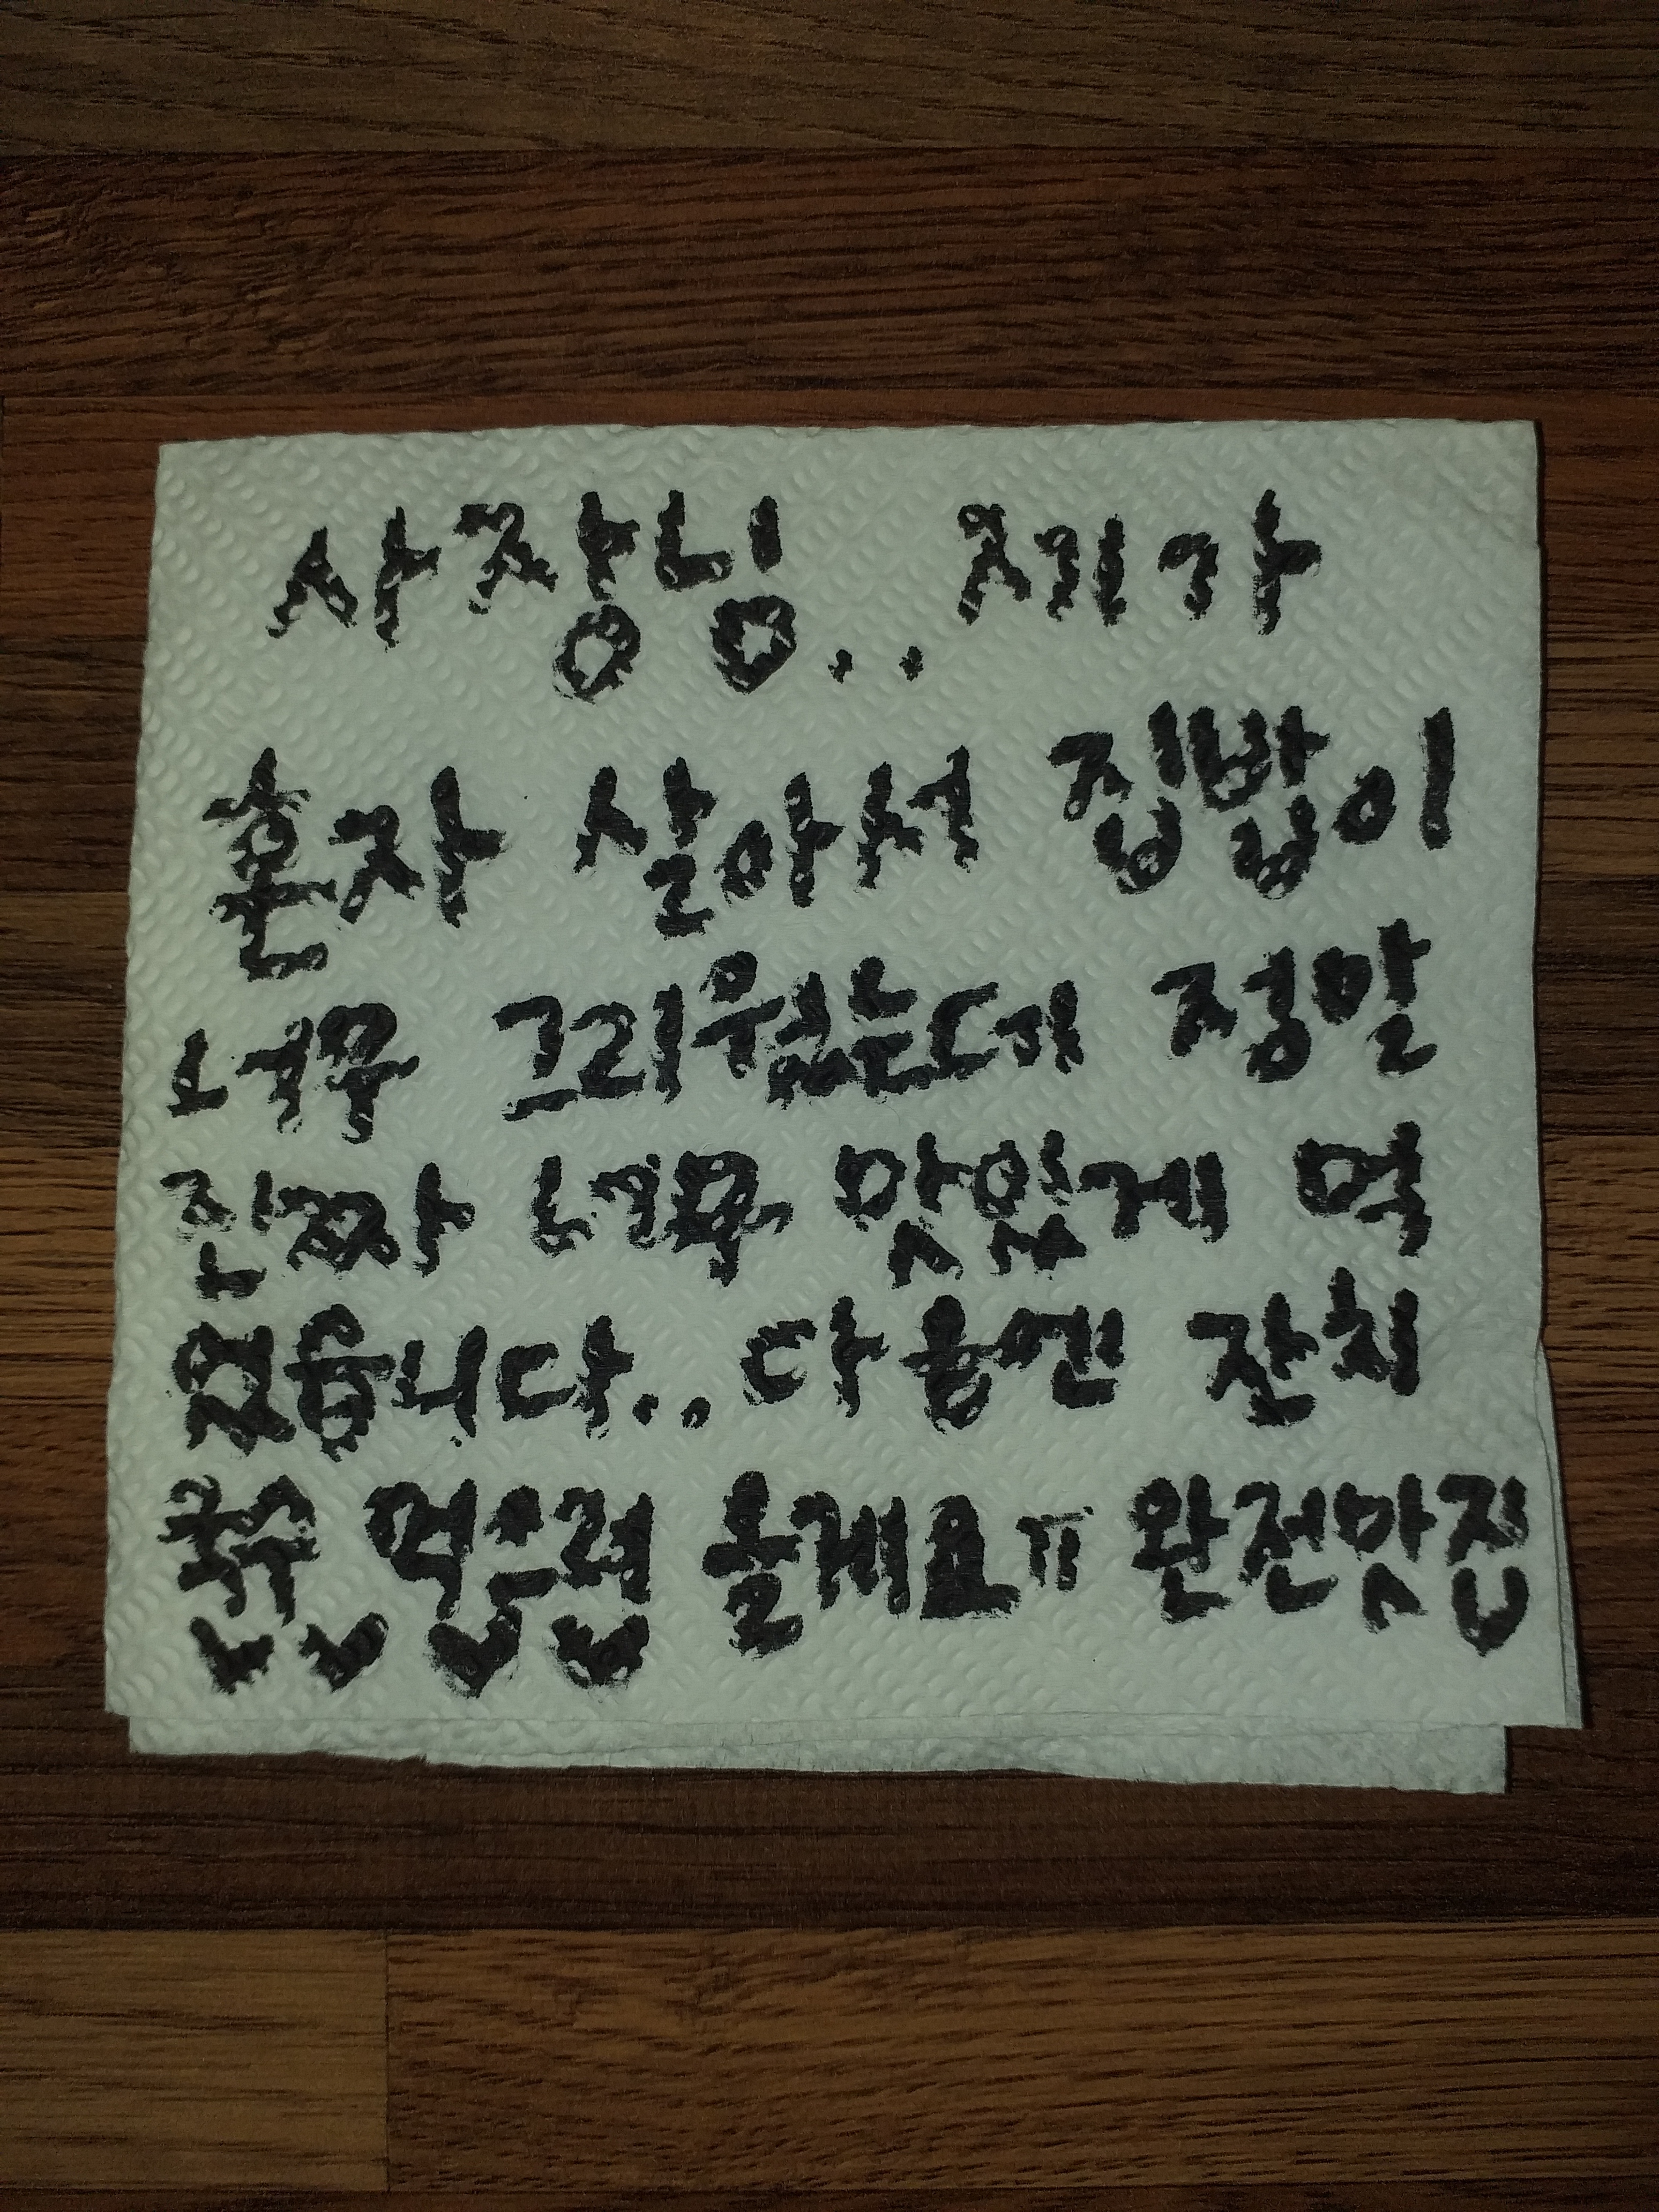 사장님.. 제가
혼자 살아서 집밥이
너무 그리웠는데 정말
진짜 너무 맛있게 먹
었습니다.. 다음엔 잔치
먹으러 올게요ㅠ 완전맛집